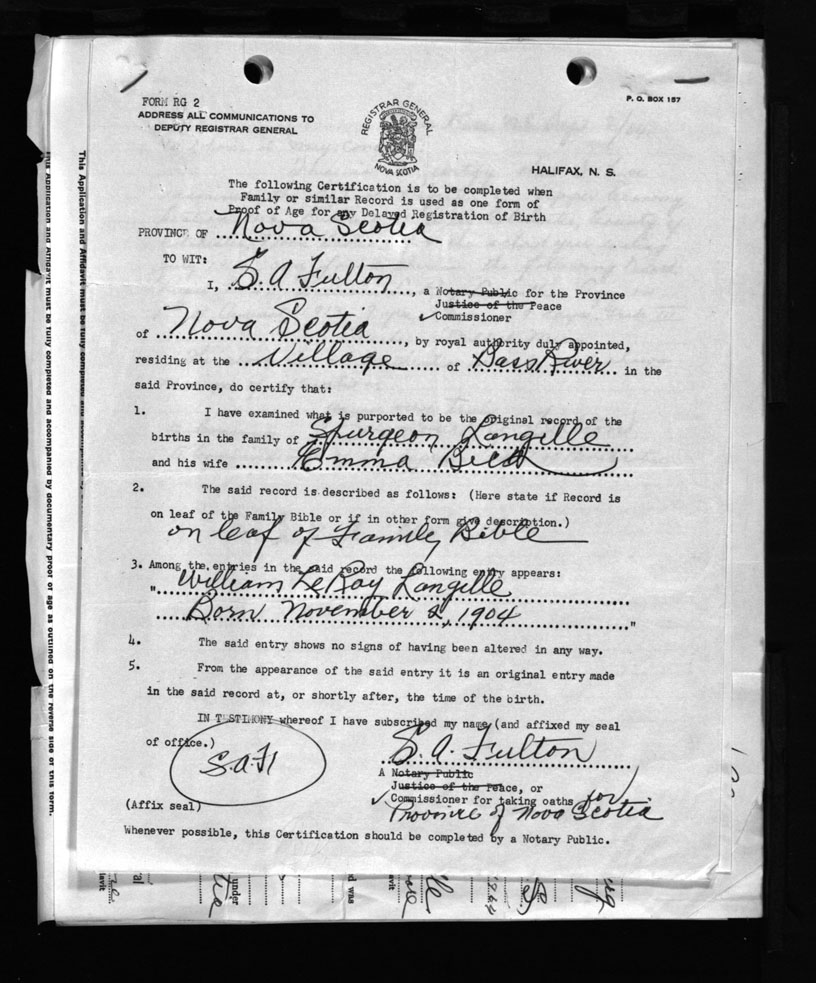 FORM RG 2
ADDRESS ALL COMMUNICATIONS TO
DEPUTY REGISTRAR GENERAL
REGISTRAR GENERAL
NOVA SCOTIA
P. O. BOX 157
HALIFAX, N. S.
The following Certification is to be completed when
Family or similar Record is used as one form of
Proof of Age for any Delayed Registration of Birth
PROVINCE OF Nova Scotia
TO WIT:
I, S. A Fulton, a Notary Public for the Province
Justice of the Peace
✓Commissioner
of Nova Scotia, by royal authority duly appointed,
residing at the Village of Bass River in the
said Province, do certify that:
1. I have examined what is purported to be the original record of the
births in the family of Spurgeon Langille
and his wife Emma
2. The said record is described as follows: (Here state if Record is
on leaf of the Family Bible or if in other form give description.)
on leaf of Family Bible
3. Among the entries in the said record the following entry appears:
"William LeRoy Langille
Born November 2, 1904"
4. The said entry shows no signs of having been altered in any way.
5. From the appearance of the said entry it is an original entry made
in the said record at, or shortly after, the time of the birth.
IN TESTIMONY whereof I have subscribed my name (and affixed my seal
of office.)
S.A.F
S. A. Fulton
A Notary Public
Justice of the Peace, or
✓Commissioner for taking oaths for
Province of Nova Scotia
(Affix seal)
Whenever possible, this Certification should be completed by a Notary Public.
This Application and Affidavit must be fully completed and accompanied by
This Application and Affidavit must be fully completed and accompanied by documentary proof of age as outlined on the reverse side of this form.
under
d was